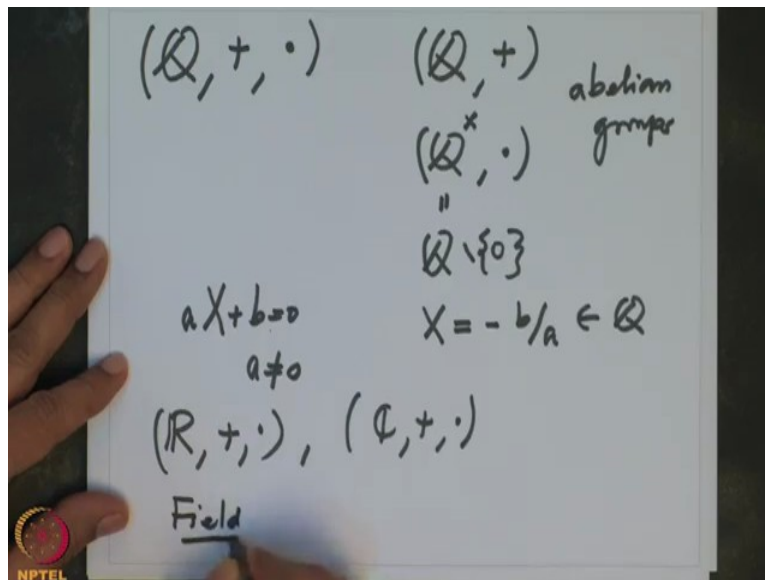 (ℚ, +, ·) (ℚ, +) abelian
groups
(ℚ^×, ·)
=
ℚ \ {0}
aX + b = 0 X = - b/a ∈ ℚ
a ≠ 0
(ℝ, +, ·), (ℂ, +, ·)
Field
NPTEL